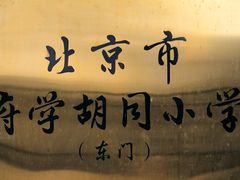 北京市
府学胡同小学
（东门）